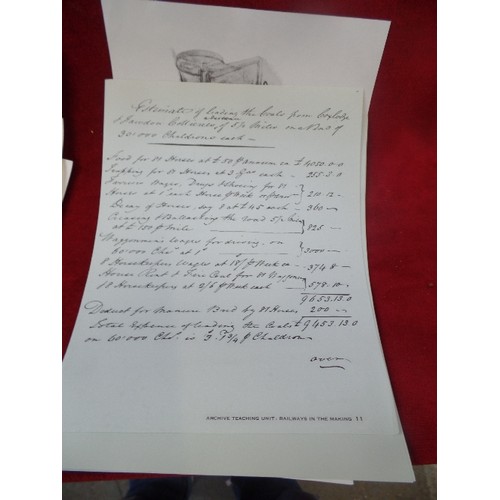 Estimate of leading the Coals from Coxlodge
& Fawdon Collieries, of 5½ Miles on a Vend of
30:000 Chaldrons each
Food for 81 Horses at £50 annum ea £4050.0.0
for 81 Horses at 3 Gs each 255.3.0
Wages, & Shoeing for 81
Horses at 1 each Horse 210.12
of Horses, say 8 at £45 each 360
the road 5½ Miles
at £150 Mile 825
Waggonmens Wages for driving, on
60:000 Chs at 1/ 3000
8 Horsekeepers Wages at 18/ Week ea 374.8
House Rent & Fire Coal for 81 Waggonmen
8 Horsekeepers at 2/6 Week each 578.10
9653.13.0
Deduct for Manure Bred by 81 Horses 200
Total Expence of leading the Coals £9453.13.0
on 60:000 Chs is 3.1¾ Chaldron
over
ARCHIVE TEACHING UNIT: RAILWAYS IN THE MAKING 11